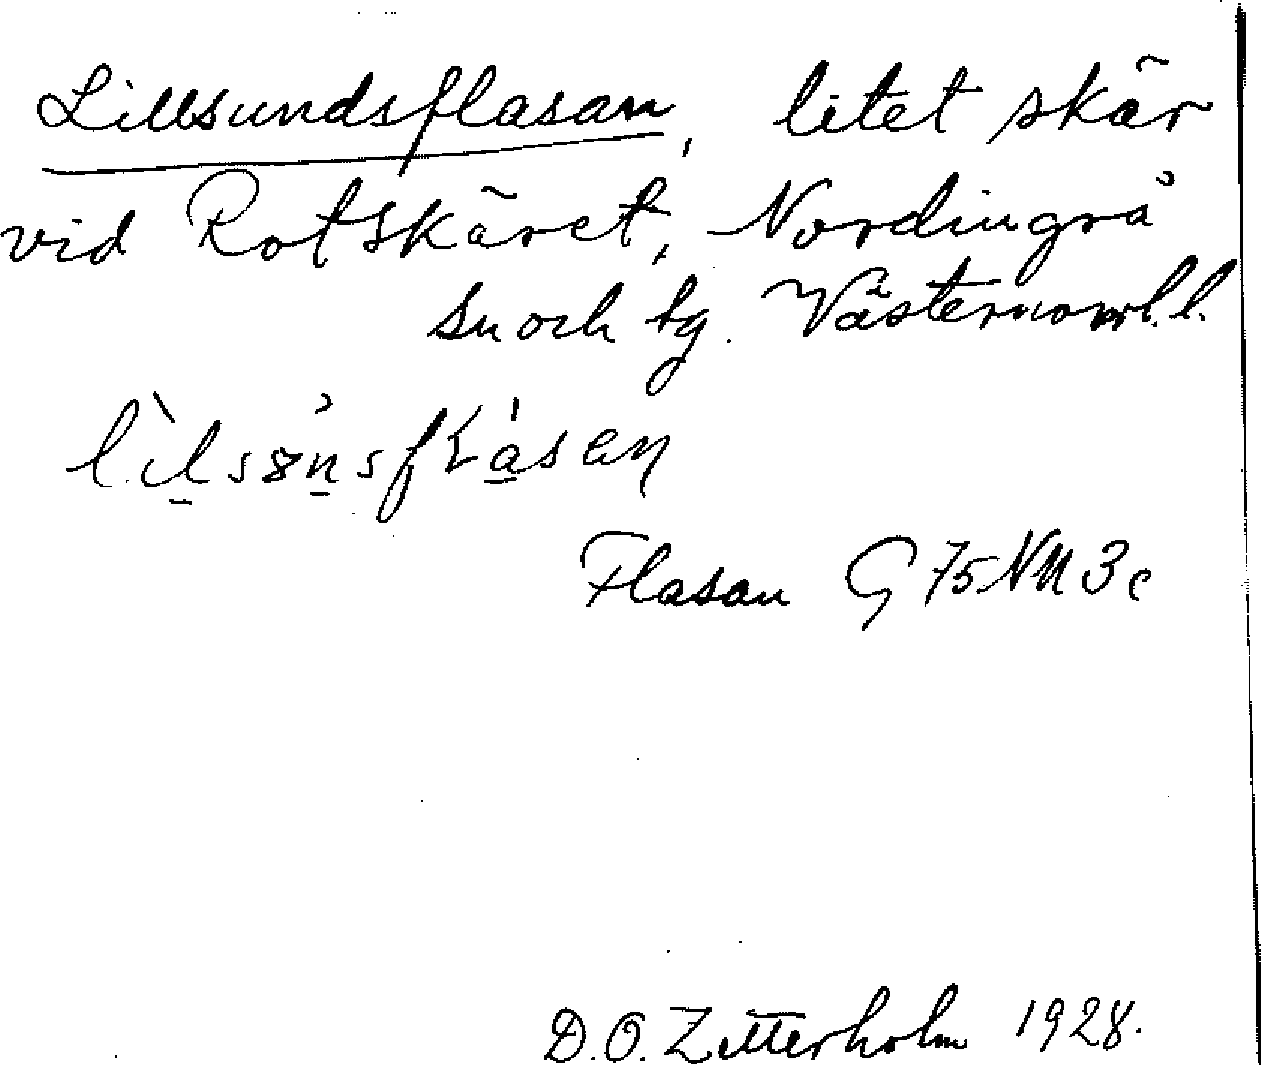 Lillsundsflasan, litet skär
vid Rotskäret, Nordingrå
sn och tg. Västernorrl. l.
Flasan G 75 NM 3c
D.O. Zetterholm 1928.